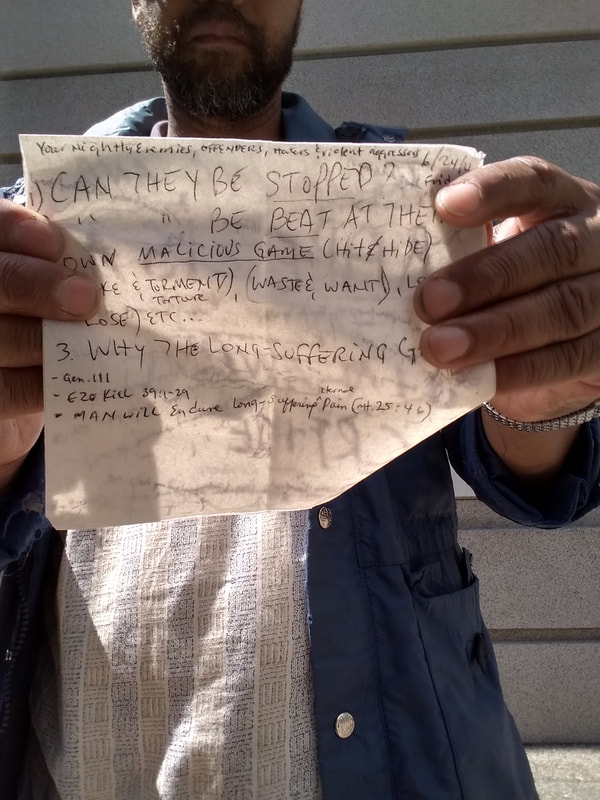 Your Nightly Enemies, OFFENDERS, Haters & violent Aggressors 6/24/
1) CAN THEY BE STOPPED?
" " BE BEAT AT THE
OWN MALICIOUS GAME (Hit & HiDE)
KE & TORMENT), (WASTE & WANT), L
TORTURE
LOSE) ETC...
3. WHY THE LONG-SUFFERING G
- Gen. 1:1
- EZeKiel 39:1-29
- MAN will Endure Long-Suffering Eternal Pain (Mt. 25:46)